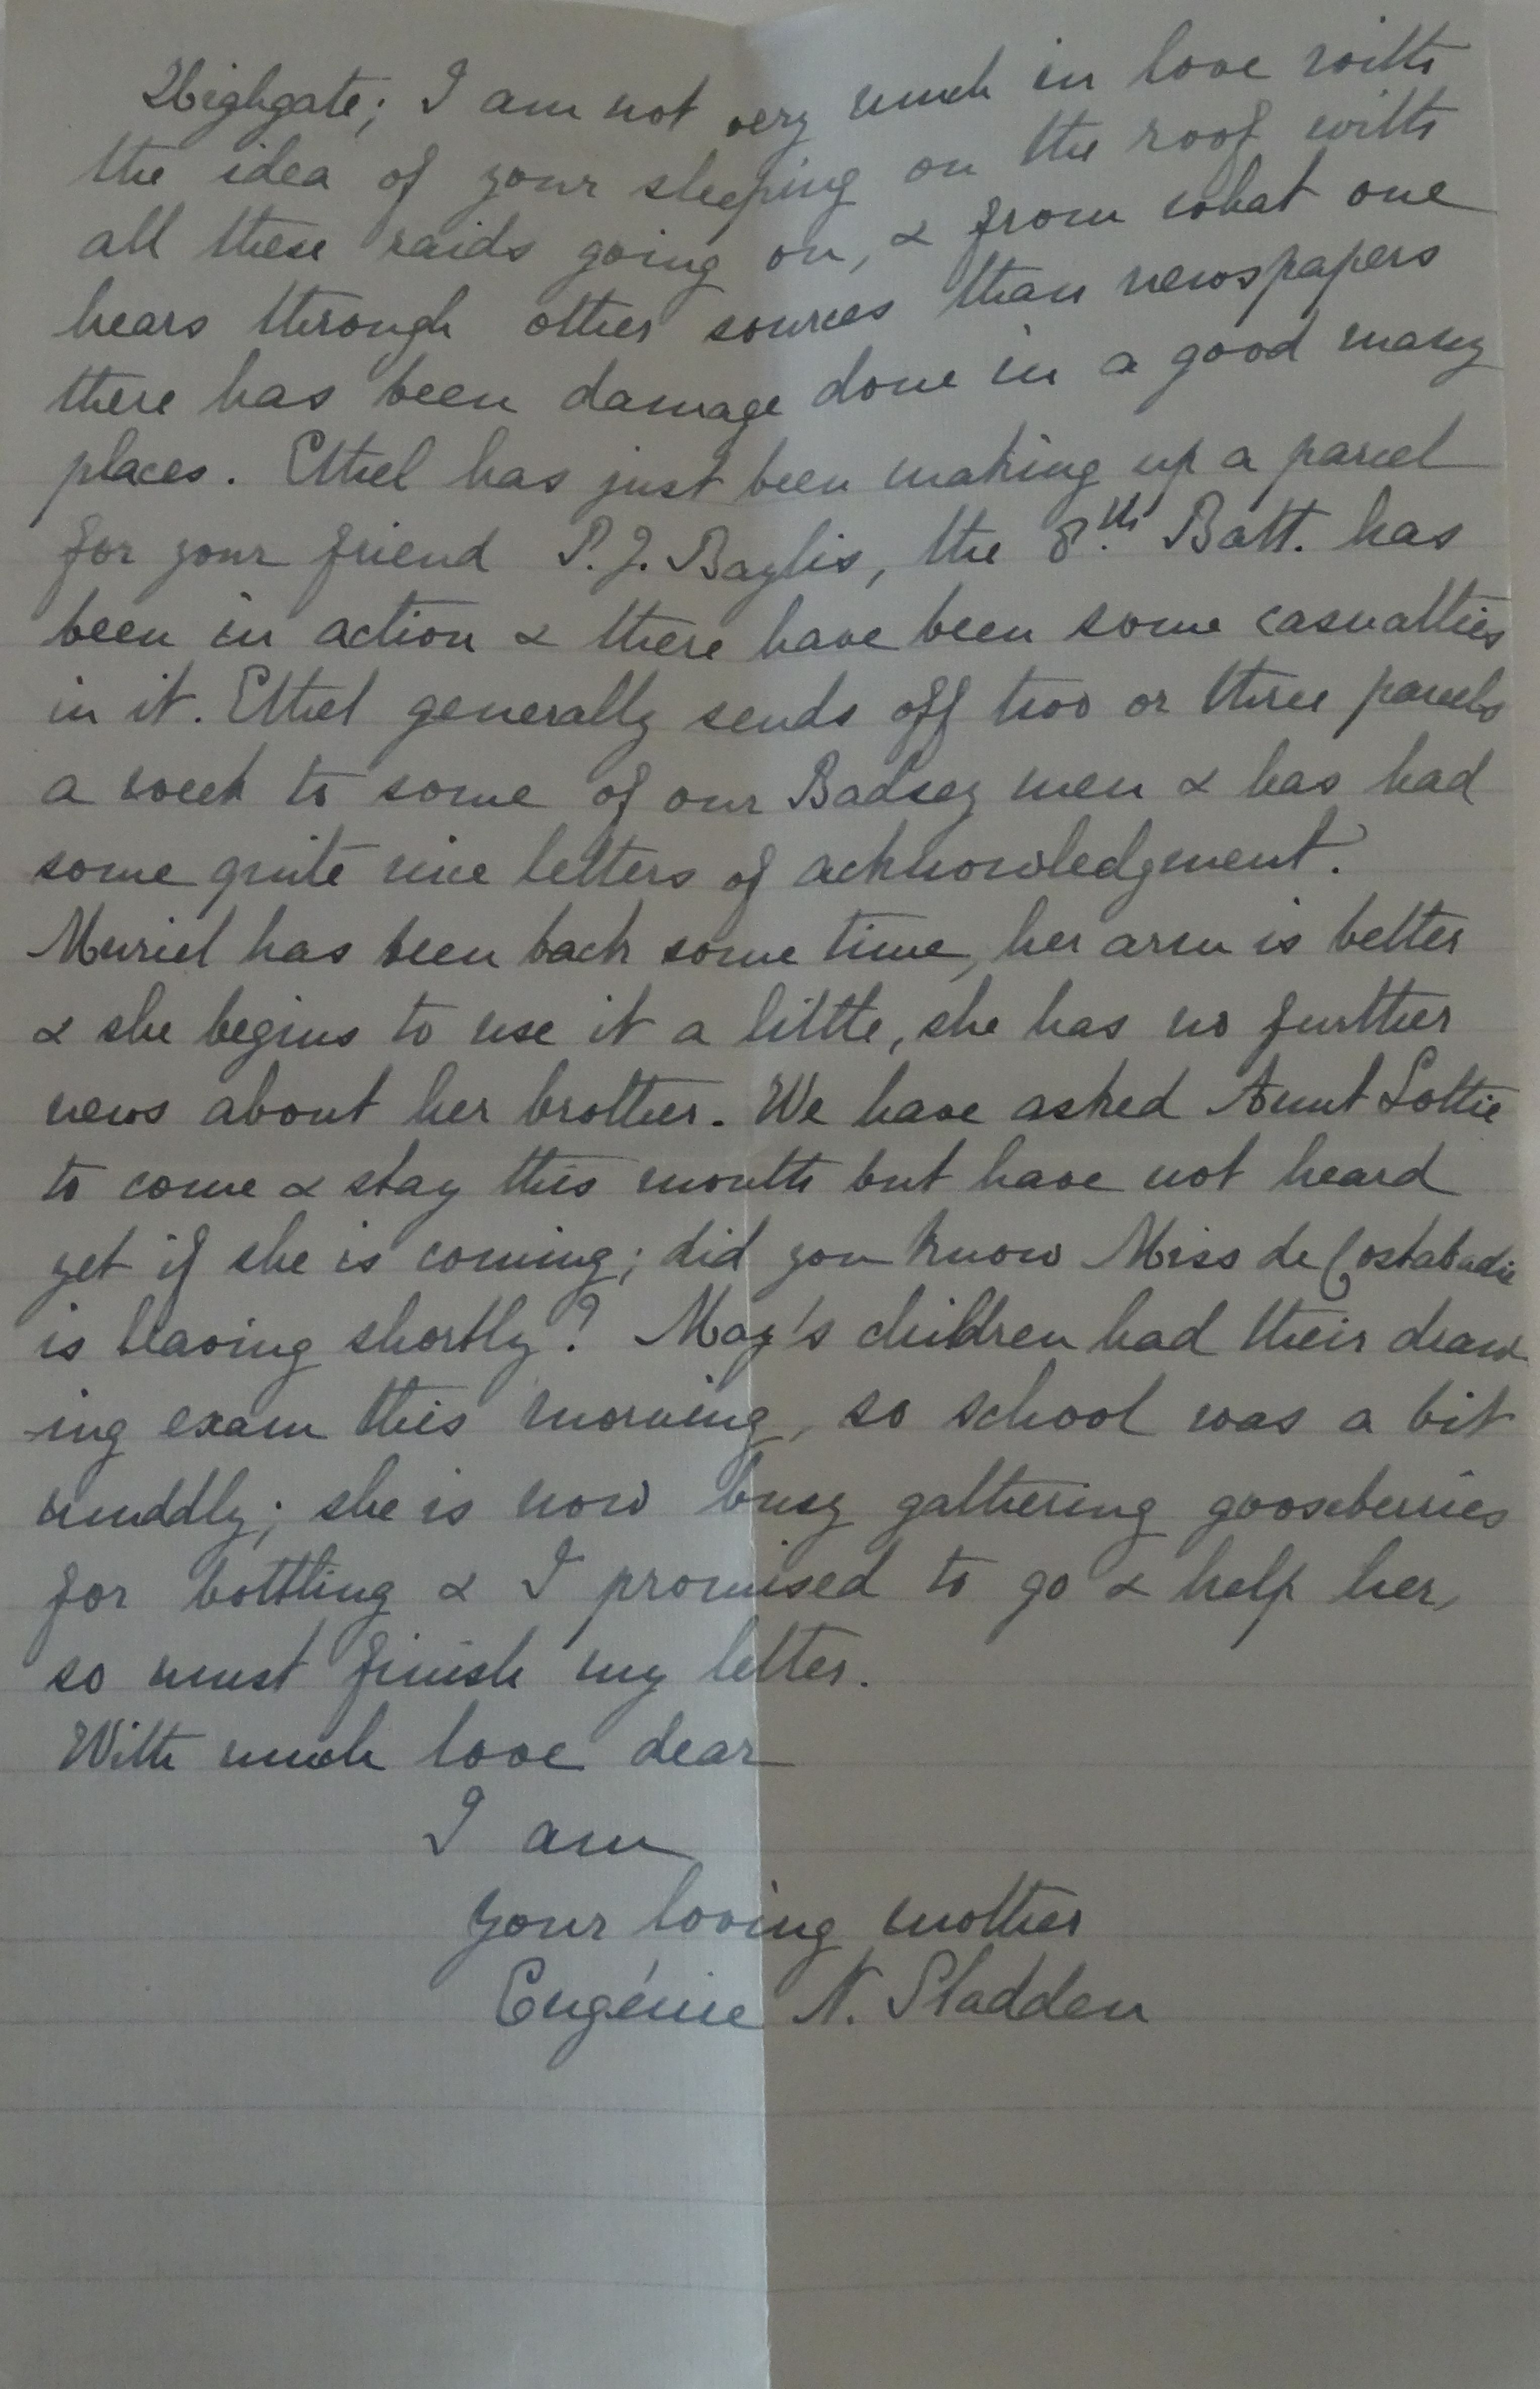 Highgate; I am not very much in love with
the idea of your sleeping on the roof with
all these raids going on, & from what one
hears through other sources than newspapers
there has been damage done in a good many
places. Ethel has just been making up a parcel
for your friend P. J. Baylis, the 8.th Batt. has
been in action & there have been some casualties
in it. Ethel generally sends off two or three parcels
a week to some of our Badsey men & has had
some quite nice letters of acknowledgment.
Muriel has been back some time, her arm is better
& she begins to use it a little, she has no further
news about her brother. We have asked Aunt Lottie
to come & stay this month but have not heard
yet if she is coming; did you know Miss de Costabadie
is leaving shortly? May's children had their draw-
-ing exam this morning, so school was a bit
muddly; she is now busy gathering gooseberries
for bottling & I promised to go & help her,
so must finish my letter.
With much love dear
I am
your loving mother
Eugénie N. Sladden